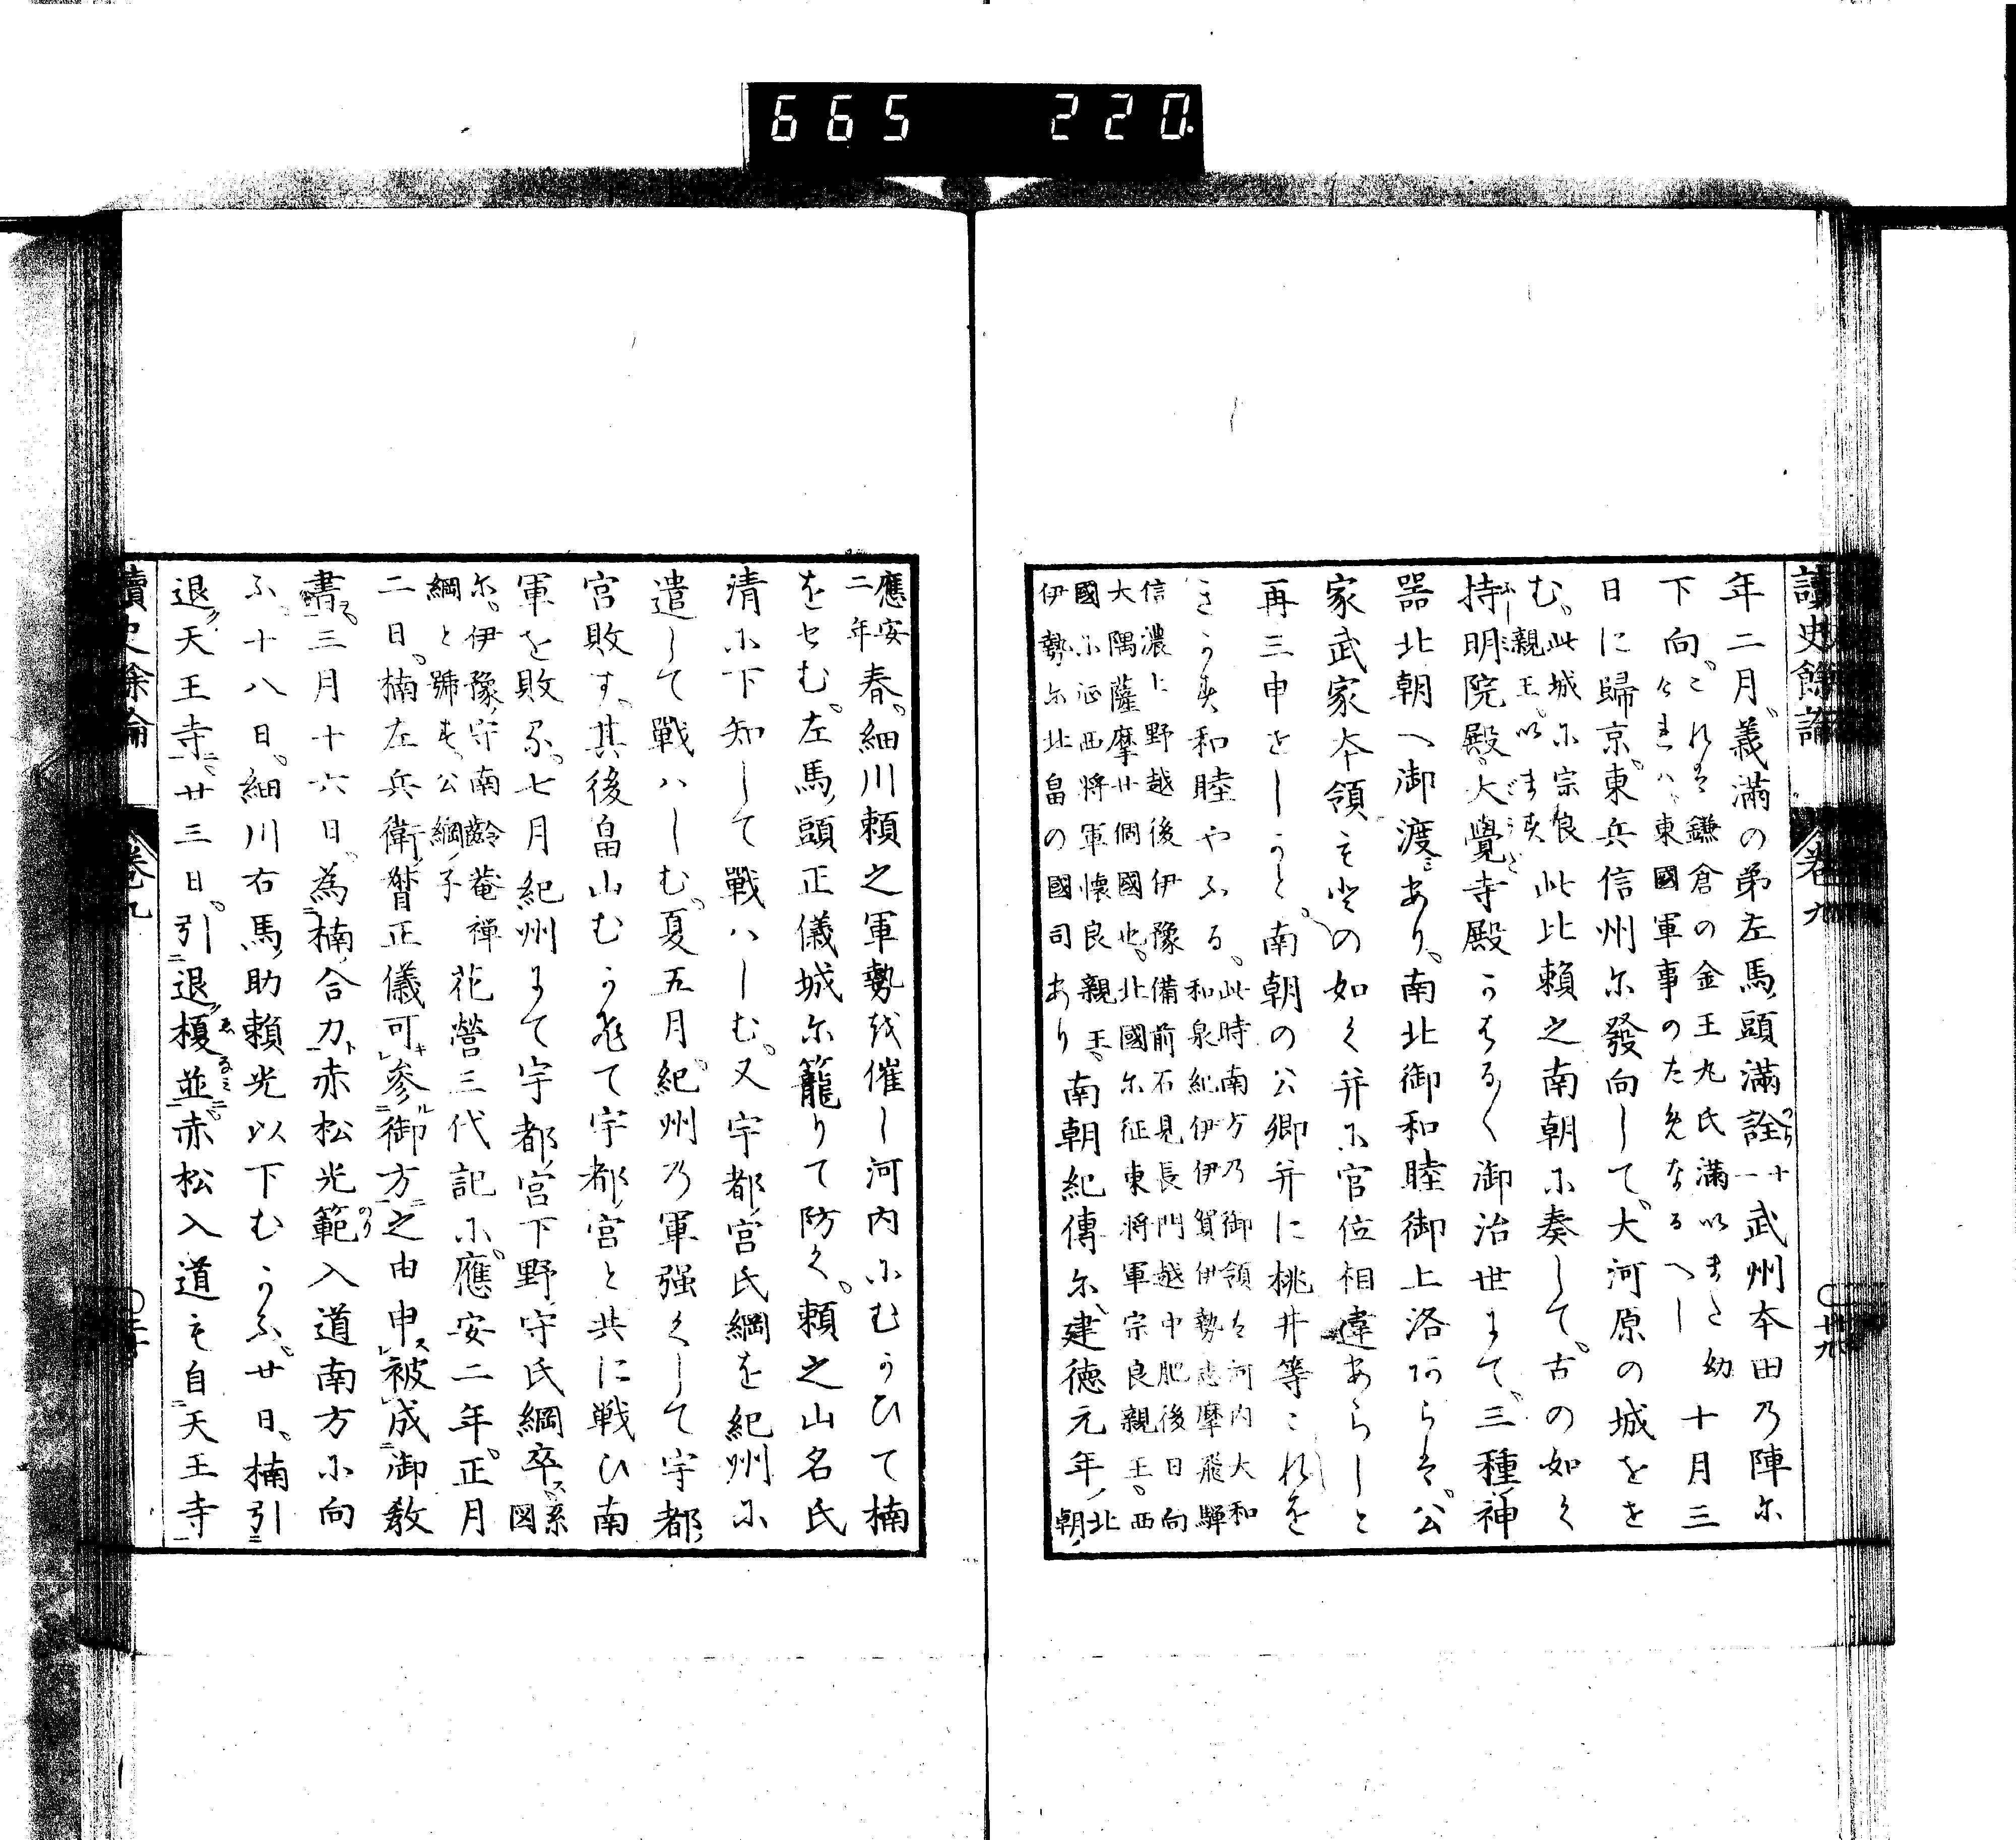 665 220
讀史餘論 卷九 〇廿九
年二月。義滿の弟左馬頭滿詮一十武州本田乃陣尓
下向。これは鎌倉の金王丸氏滿いまた幼けれハ、東國軍事のためなるへし十月三
日に歸京。東兵信州尓發向して。大河原の城をせ
む。此城尓宗良親王います此比頼之南朝ふ奏して。古の如く
持明院殿。大覺寺殿かはる〳〵御治世まて。三種神
器北朝へ御渡あり。南北御和睦御上洛あらは。公
家武家本領もとの如く并ふ官位相違あらしと
再三申せしかと。南朝の公卿并に桃井等これを
きかす和睦やふる。此時南方乃御領は河内大和和泉紀伊伊賀伊勢志摩飛騨
信濃上野越後伊豫備前石見長門越中肥後日向大隅薩摩廿個國也。北國尓征東将軍宗良親王。西
國ふ征西将軍懐良親王。伊勢尓北畠の國司あり南朝紀傳尓建徳元年北朝
應安二年春。細川頼之軍勢越催し河内ふむかひて楠
をせむ。左馬頭正儀城尓籠りて防く。頼之山名氏
清ふ下知して戰ハしむ。又宇都宮氏綱を紀州ふ
遣して戰ハしむ。夏五月。紀州乃軍强くして宇都
宮敗す。其後畠山むかひて宇都宮と共に戰ひ南
軍を敗る。七月紀州まて宇都宮下野守氏綱卒ス。系圖
尓。伊豫守南齡菴禅綱と號す、公綱子花營三代記ふ。應安二年。正月
二日。楠左兵衛督正儀可參御方之由申被成御教
書。三月十六日。為楠合力赤松光範入道南方ふ向
ふ。十八日。細川右馬助頼光以下むかふ。廿日。楠引
退天王寺。廿三日。引退榎並。赤松入道も自天王寺
讀史餘論 卷九